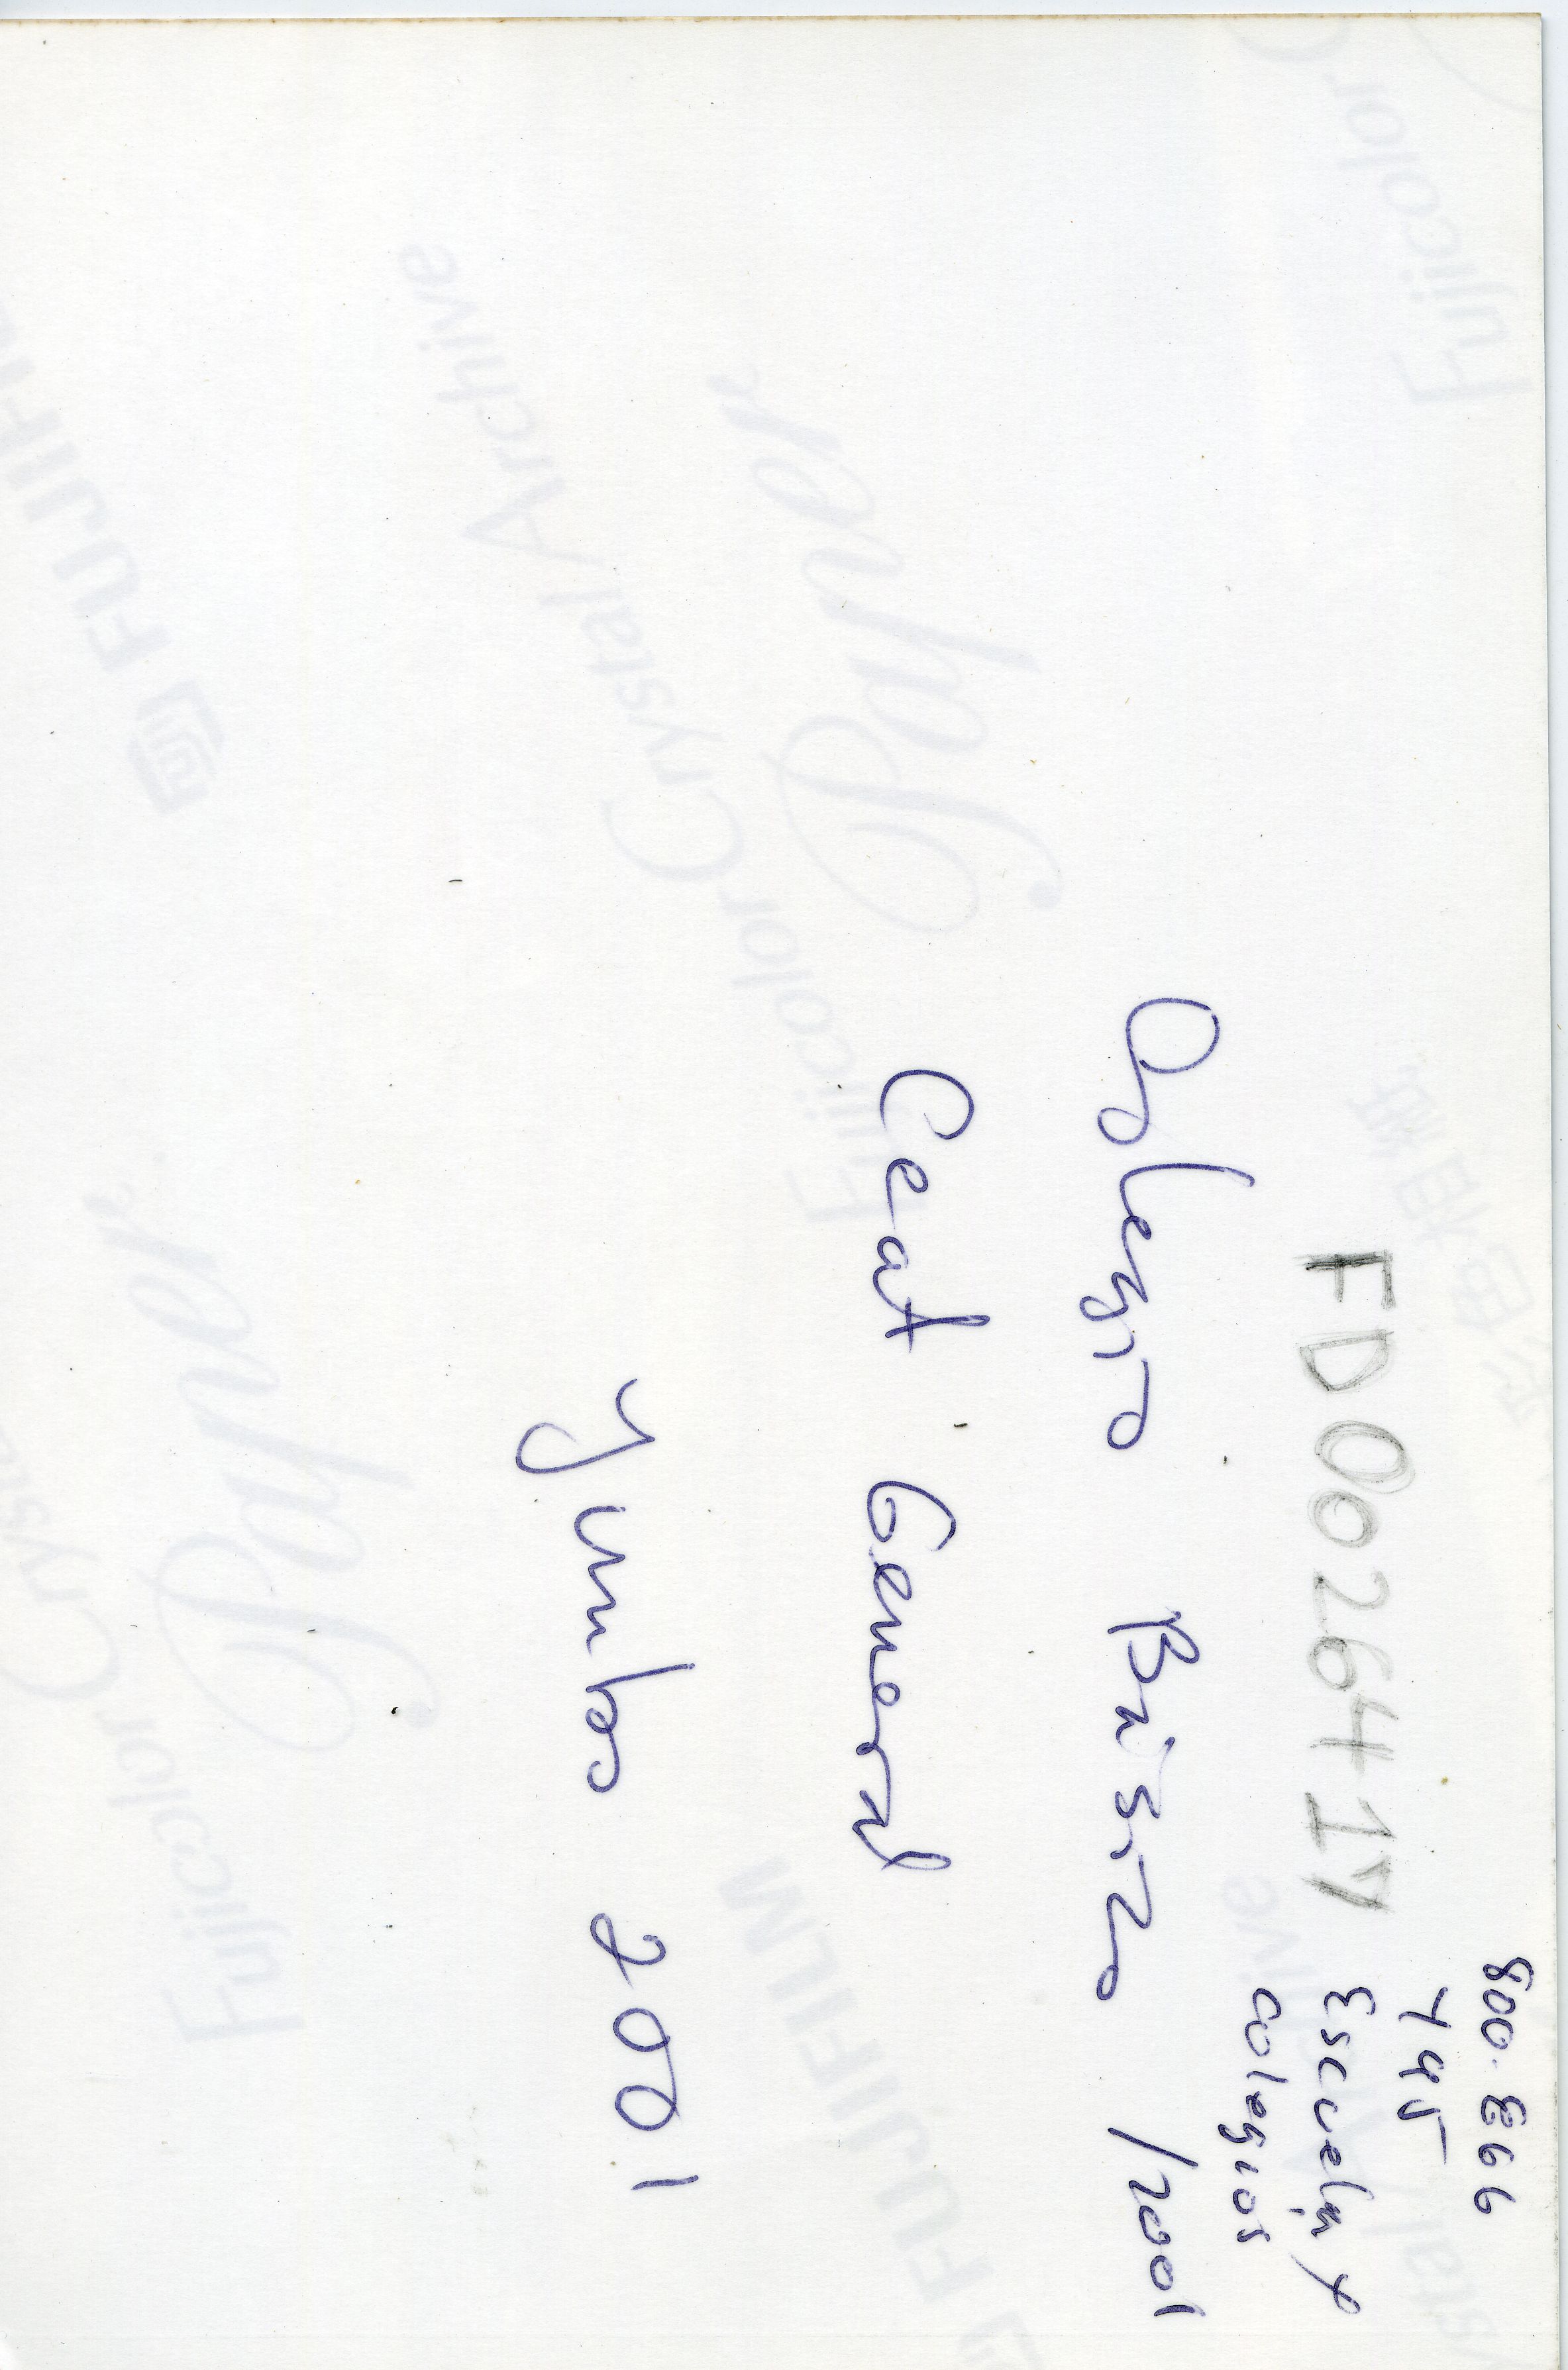 800.E66
795
Escuela y
Colegios
FD0026417
Colegio Básico /2001
Ceat General
Yumbo 2001
Fujicolor Crystal Archive
FUJIFILM